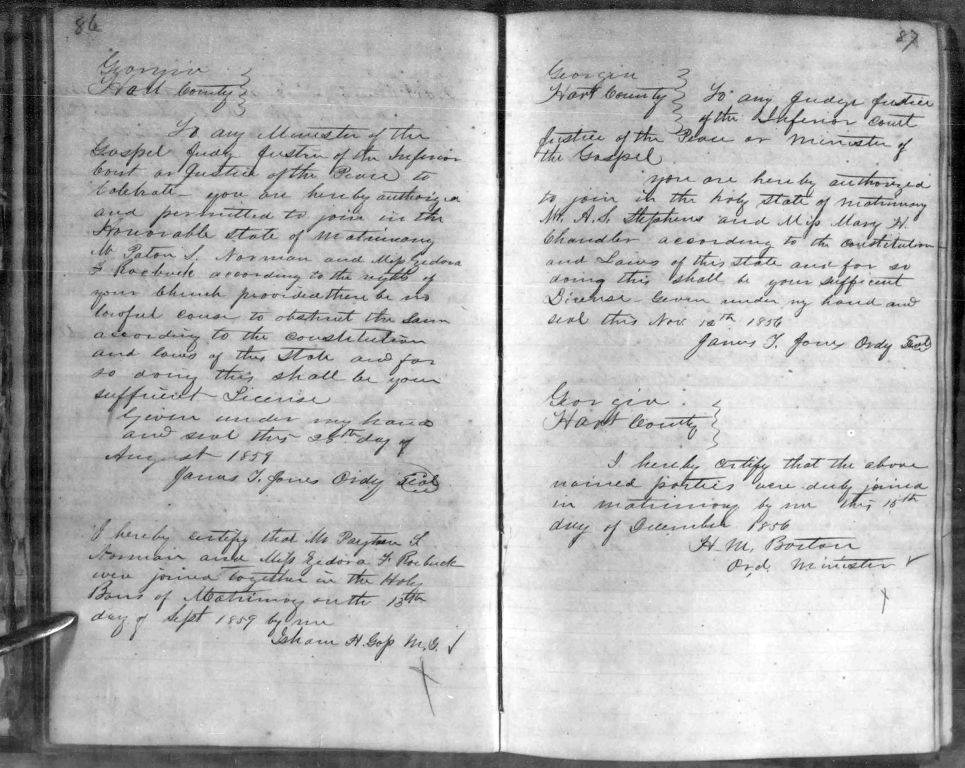 86
Georgia
Hart County
To any Minister of the
Gospel Judg Justice of the Inferior
Court or Justice of the Peace to
Celebrate you are hereby authorized
and permitted to join in the
Honorable state of matrimony
Mr Paton S. Norman and Miss
F Roebuck according to the rights of
your Church provided there be no
lawful cause to obstruct the same
according to the constitution
and laws of this State and for
so doing this shall be your
sufficient License
Given under my hand
and seal this 25th day of
August 1859
James T. Jones Ordy Seal
I hereby certify that Mr Payton S
Norman and Miss F Roebuck
were joined together in the Holy
Bans of Matrimony on the 13th
day of Sept 1859 by me
Isham H. Goss M.G.
87
Georgia
Hart County To any Judge Justice
of the Inferior court
Justice of the Peace or Minister of
the Gospel
you are hereby authorized
to join in the holy state of matrimony
Mr. A. S. Stephens and Miss Mary H.
Chandler according to the constitution
and Laws of this state and for so
doing this shall be your sufficient
License Given under my hand and
seal this Nov. 12th 1856
James T. Jones Ordy Seal
Georgia
Hart County
I hereby certify that the above
named parties were duly joined
in matrimony by me this 15th
day of December 1856
H. M. Barton
Ord. Minister